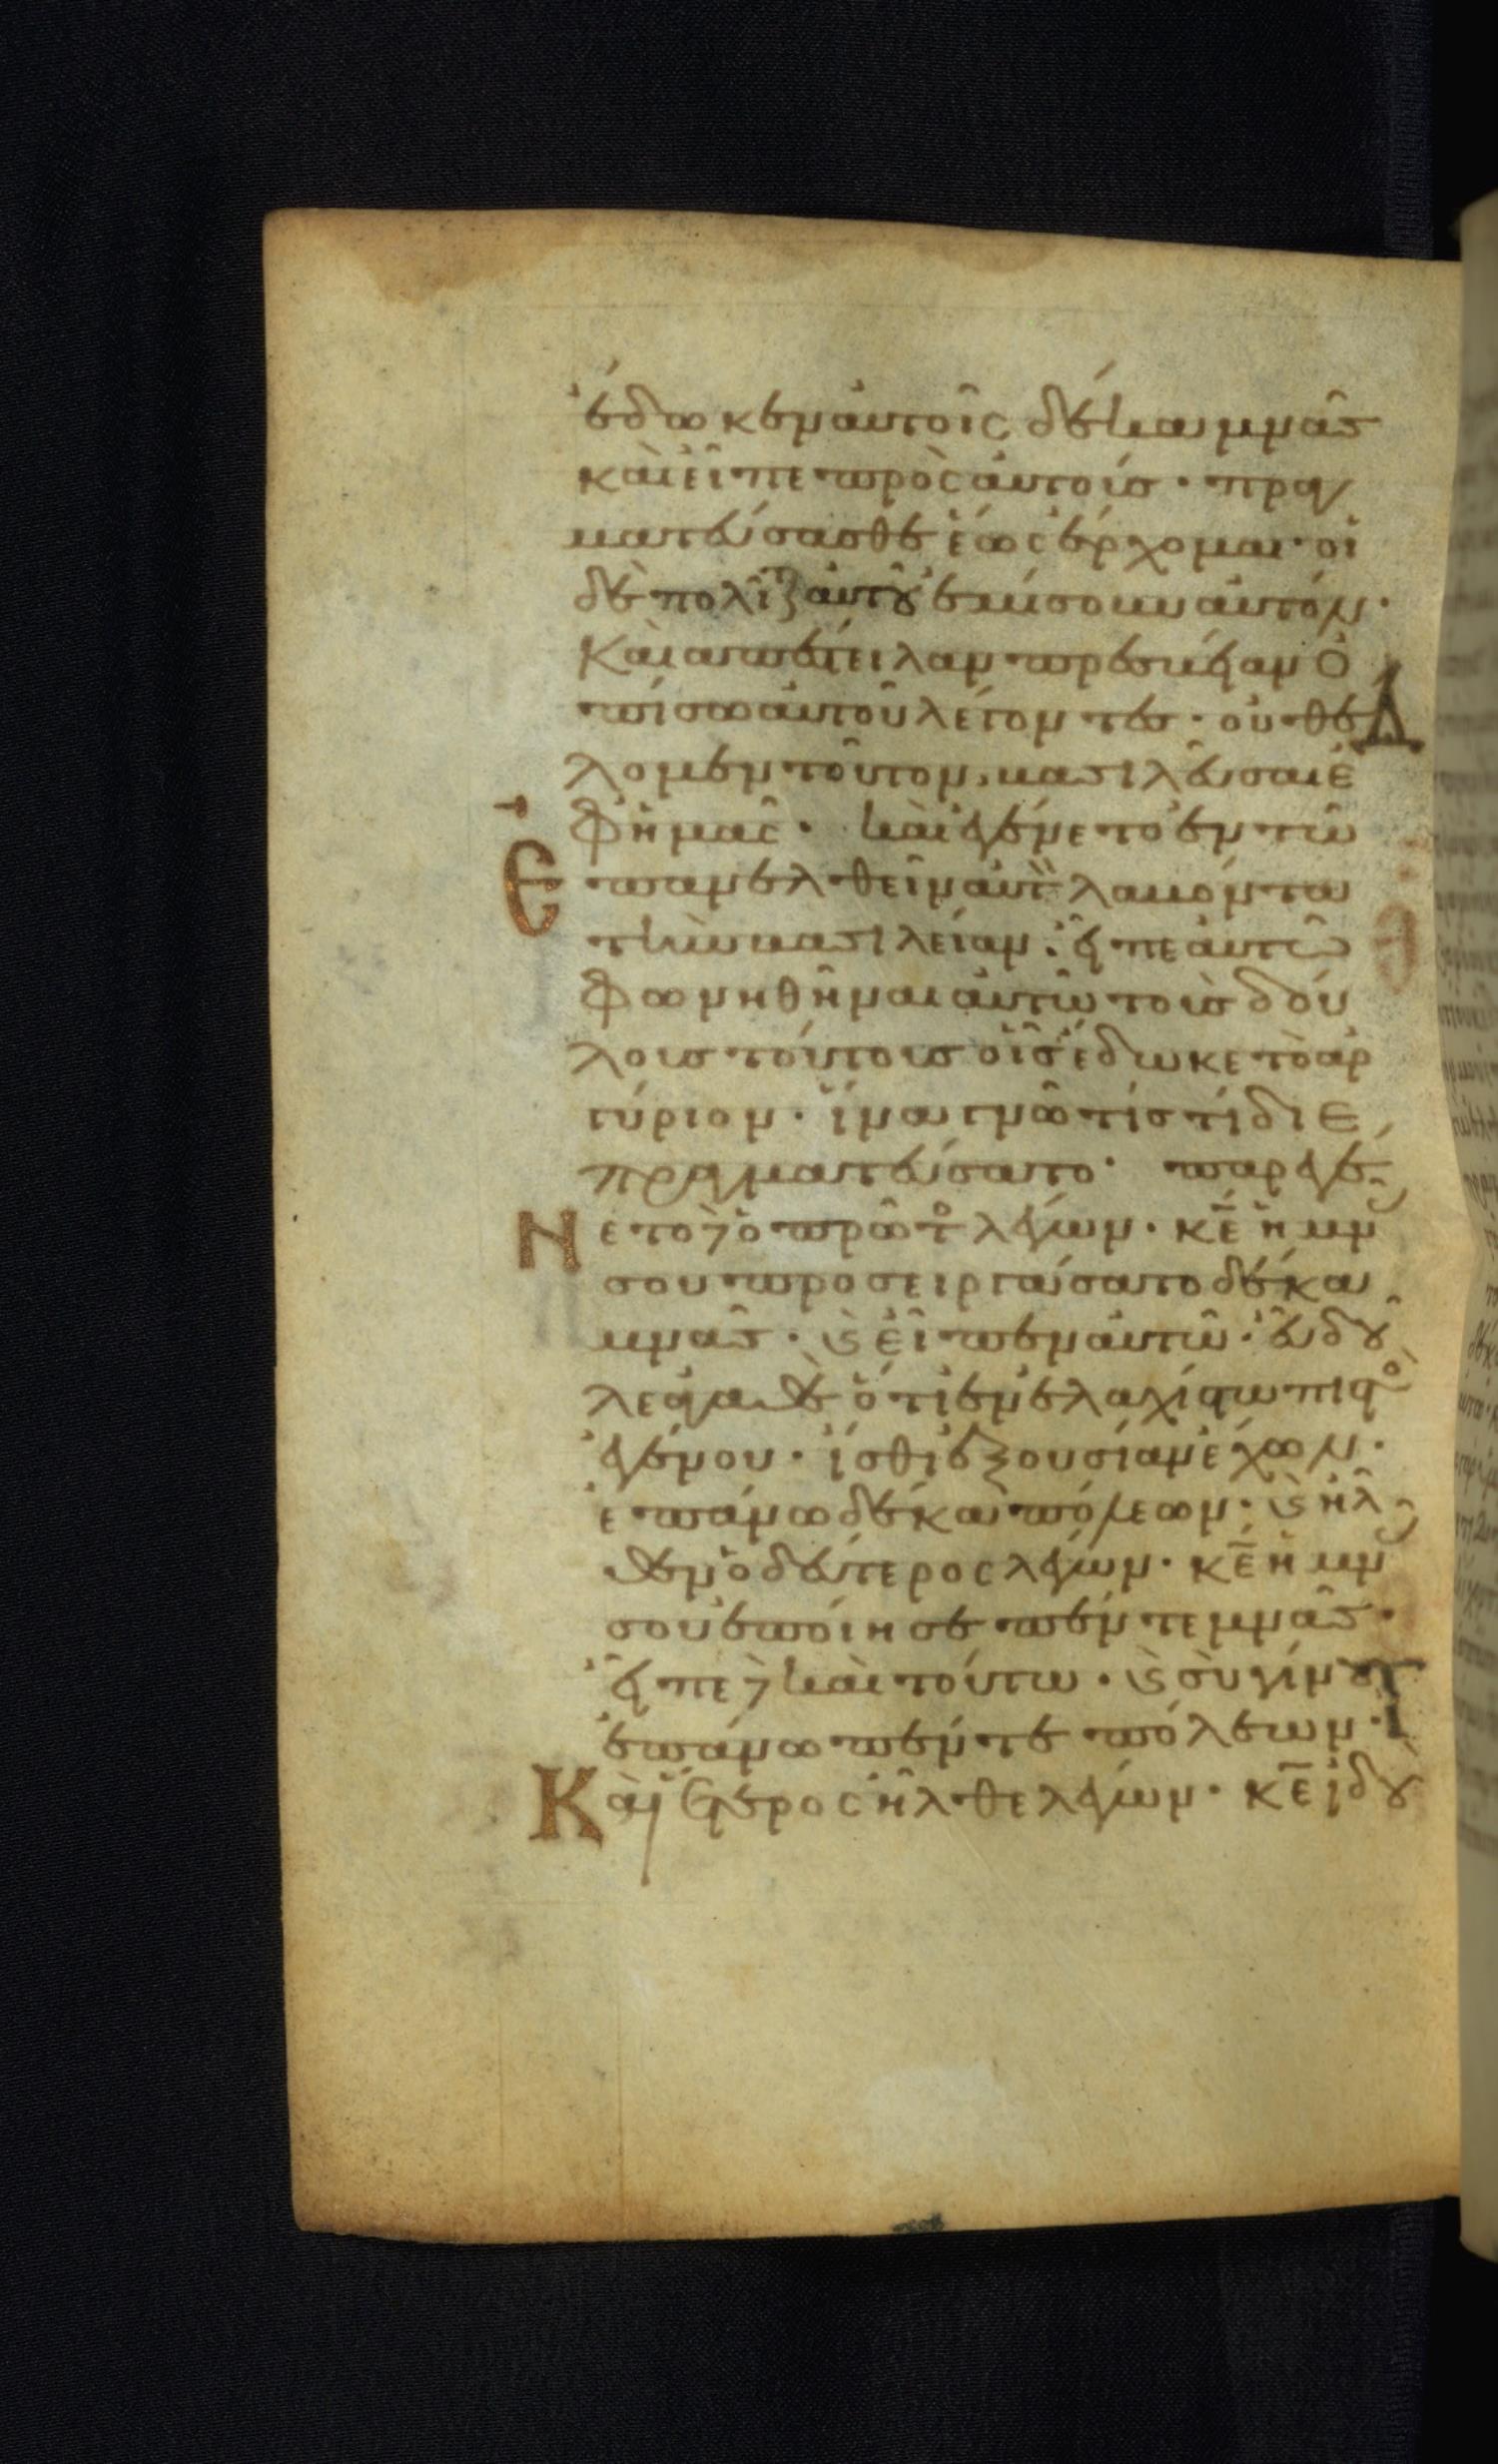 ἔδωκεν αυτοῖς δέκα μνᾶς
καὶ εἶπε πρὸς αὐτούς· πραγ
ματεύσασθε ἕως ἔρχομαι· οἱ
δὲ πολῖτ αὐτοῦ ἐμίσουν αὐτόν·
Καὶ απέστειλαν πρεσβείαν ὀ
πίσω αὐτοῦ λέγοντες· οὐ θέ
λομεν τοῦτον βασιλεῦσαι ἐ
φ ἡμᾶς· καὶ ἐγένετο ἐν τῶ
Ε πανελθεῖν αὐτ λαβόντα
τὴν βασιλείαν· εἶπε αὐτῶ
φωνηθῆναι αὐτῶ τοὺς δού
λους τούτους οἷς ἔδωκε τὸ αρ
γύριον· ἵνα γνῶ τίς τί διε
πραγματεύσατο· παρεγέ
Ν ετο δὲ ὁ πρῶτο λέγων· κε̄ ἡ μν
σου προσειργάσατο δέκα
μνᾶς· καὶ εἶπεν αὐτῶ· εὖ δοῦ
λε αγαθὲ ὅτι ἐν ἐλαχίστω πιστο
ἐγένου· ἴσθι ἐξουσίαν ἔχων·
ἐπάνω δέκα πόλεων· καὶ ἦλ
θεν ὁ δεύτερος λέγων· κε̄ ἡ μν
σου ἐποίησε πέντε μνᾶς·
εἶπε δὲ καὶ τούτω· καὶ σὺ γίνου
ἐπάνω πέντε πόλεων·
Καὶ ἕτερος ἦλθε λέγων· κε̄ ἰδοὺ